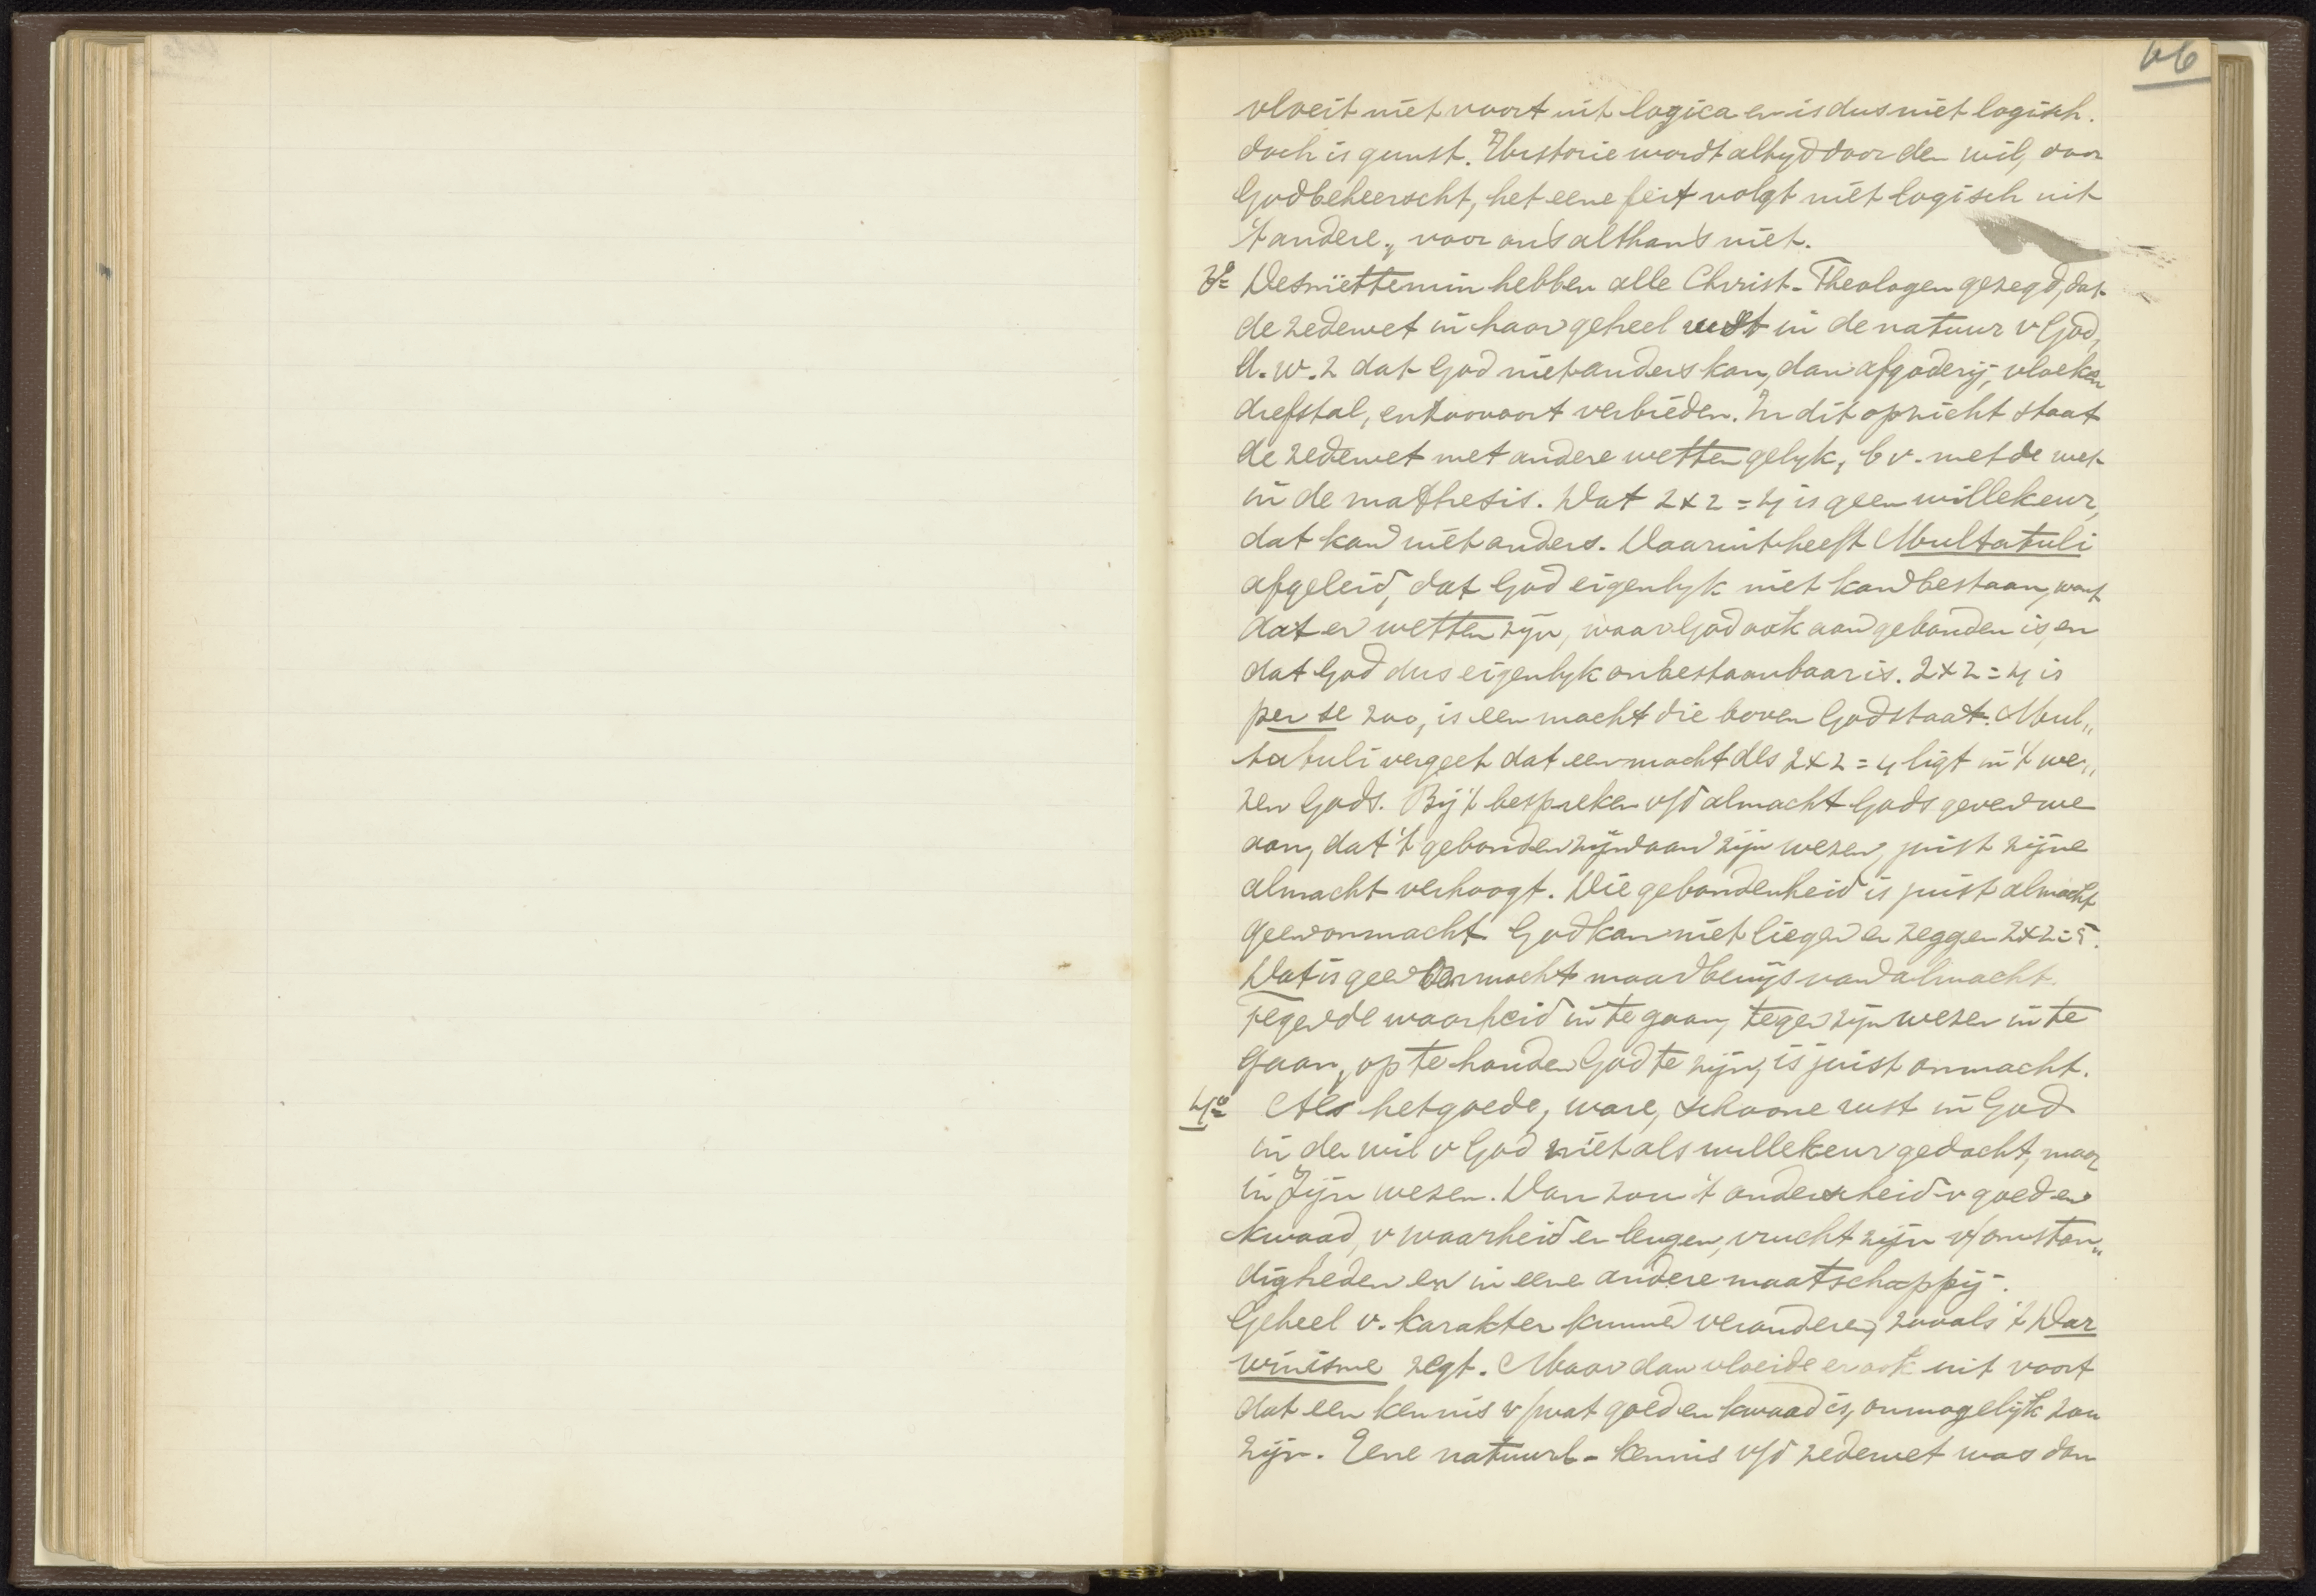 66
vloeit niet voort uit logica en is dus niet logisch.
doch is gunst. Historie wordt altyd door den wil, door
God beheerscht, het eene feit volgt niet logisch uit
't andere, voor ons althans niet.
3º Desniettemin hebben alle Christ. Theologen gezegd, dat
de zedewet in haar geheel rust in de natuur v God,
d.w.z dat God niet anders kan, dan afgoderij, vloeken
diefstal, enzoovoort verbieden. In dit opzicht staat
de zedewet met andere wetten gelyk, b v. met de wet
in de mathesis. Dat 2 x 2 = 4 is geen willekeur,
dat kan niet anders. Daaruit heeft Multatuli
afgeleid, dat God eigenlyk niet kan bestaan, want
dat er wetten zijn, waar God ook aan gebonden is, en
dat God dus eigenlyk onbestaanbaar is. 2 x 2 = 4 is
per se zoo, is een macht die boven God staat. Mul„
tatuli vergeet dat een macht als 2 x 2 = 4 ligt in 't we„
zen Gods. Bij 't bespreken v/d almacht Gods geven we
aan, dat 't gebonden zijn aan zijn wezen, juist zijne
almacht verhoogt. Die gebondenheid is juist almacht
geen onmacht God kan niet liegen en zeggen 2x2=5.
Dat is geen onmacht maar bewijs van almacht.
Tegen de waarheid in te gaan, tegen zijn wezen in te
gaan, op te houden God te zijn, is juist onmacht.
4º Als het goede, ware, schoone rust in God
in den wil v God niet als willekeur gedacht, maar
in Zijn wezen. Dan zou 't onderscheid v goed en
kwaad, v waarheid en leugen, vrucht zijn v/ omstan„
digheden en in eene andere maatschappij.
Geheel v. karakter kunnen veranderen, zooals 't Dar
winisme zegt. Maar dan vloeide er ook uit voort
dat een kennis v/ wat goed en kwaad is, onmogelijk zou
zijn. Eene natuurl- kennis v/d zedewet was dan